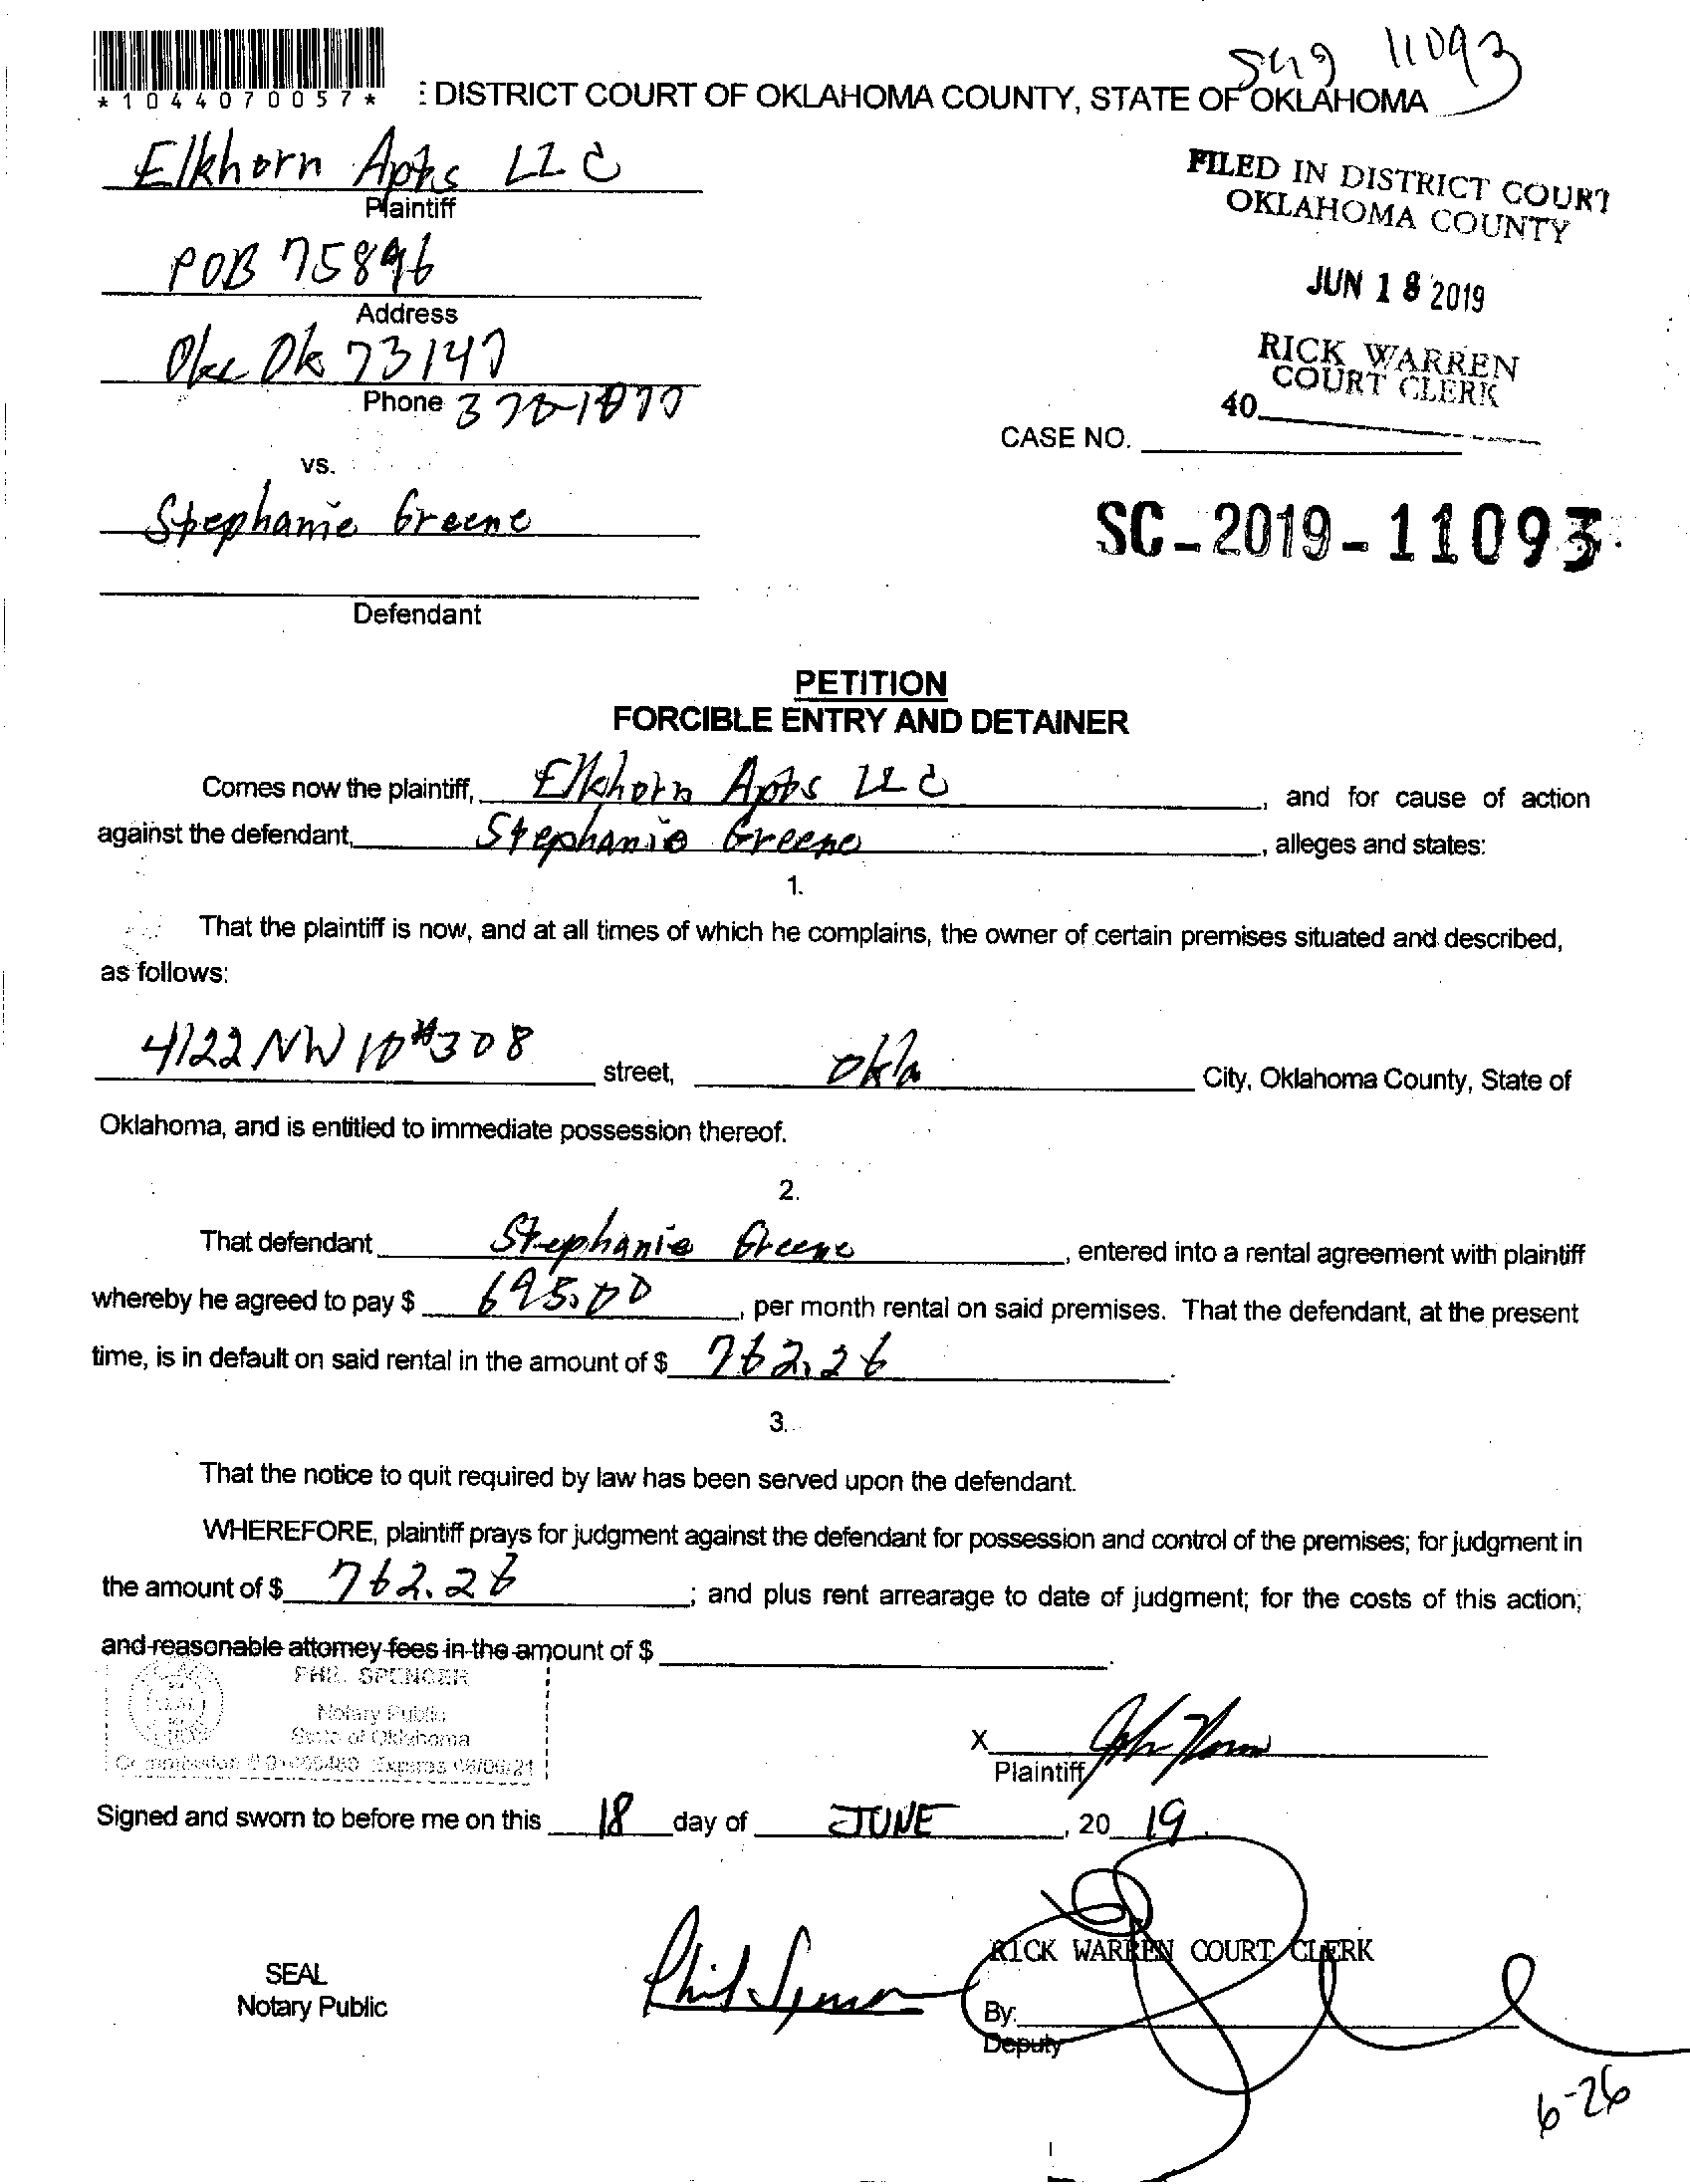 SC19 11093
*1044070057*
: DISTRICT COURT OF OKLAHOMA COUNTY, STATE OF OKLAHOMA
Elkhorn Apts LLC
Plaintiff
FILED IN DISTRICT COURT
OKLAHOMA COUNTY
POB 75896
Address
JUN 18 2019
Okc Ok 73147
RICK WARREN
COURT CLERK
Phone
40
CASE NO.
vs.
Stephanie Greene
SC-2019-11093
Defendant
PETITION
FORCIBLE ENTRY AND DETAINER
Comes now the plaintiff, Elkhorn Apts LLC, and for cause of action
against the defendant, Stephanie Greene, alleges and states:
1.
That the plaintiff is now, and at all times of which he complains, the owner of certain premises situated and described,
as follows:
4122 NW 10 #308 street, Okla City, Oklahoma County, State of
Oklahoma, and is entitled to immediate possession thereof.
2.
That defendant Stephanie Greene, entered into a rental agreement with plaintiff
whereby he agreed to pay $ 695.00, per month rental on said premises. That the defendant, at the present
time, is in default on said rental in the amount of $ 762.26.
3.
That the notice to quit required by law has been served upon the defendant.
WHEREFORE, plaintiff prays for judgment against the defendant for possession and control of the premises; for judgment in
the amount of $ 762.26; and plus rent arrearage to date of judgment; for the costs of this action;
and reasonable attorney fees in the amount of $
PHIL SPENCER
Notary Public
State of Oklahoma
X
Plaintiff
Signed and sworn to before me on this 18 day of JUNE, 20 19.
RICK WARREN COURT CLERK
SEAL
Phil Spencer
Notary Public
By:
Deputy
6-26